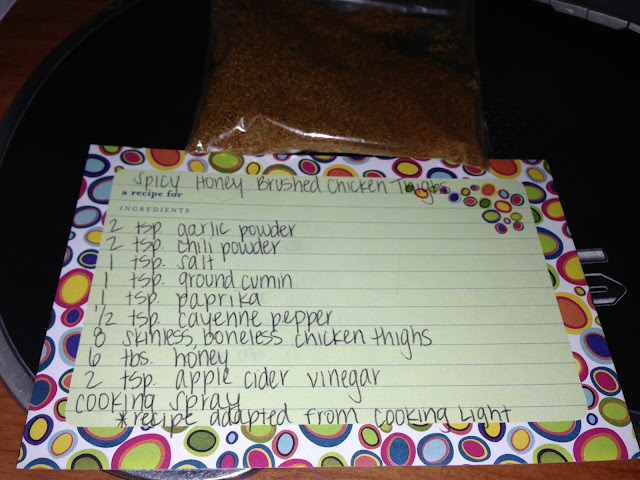 Spicy Honey Brushed Chicken Thighs
a recipe for
INGREDIENTS
2 tsp garlic powder
2 tsp. chili powder
1 tsp. salt
1 tsp. ground cumin
1 tsp. paprika
1/2 tsp. cayenne pepper
8 skinless, boneless chicken thighs
6 tbs. honey
2 tsp. apple cider vinegar
cooking spray
*recipe adapted from Cooking Light